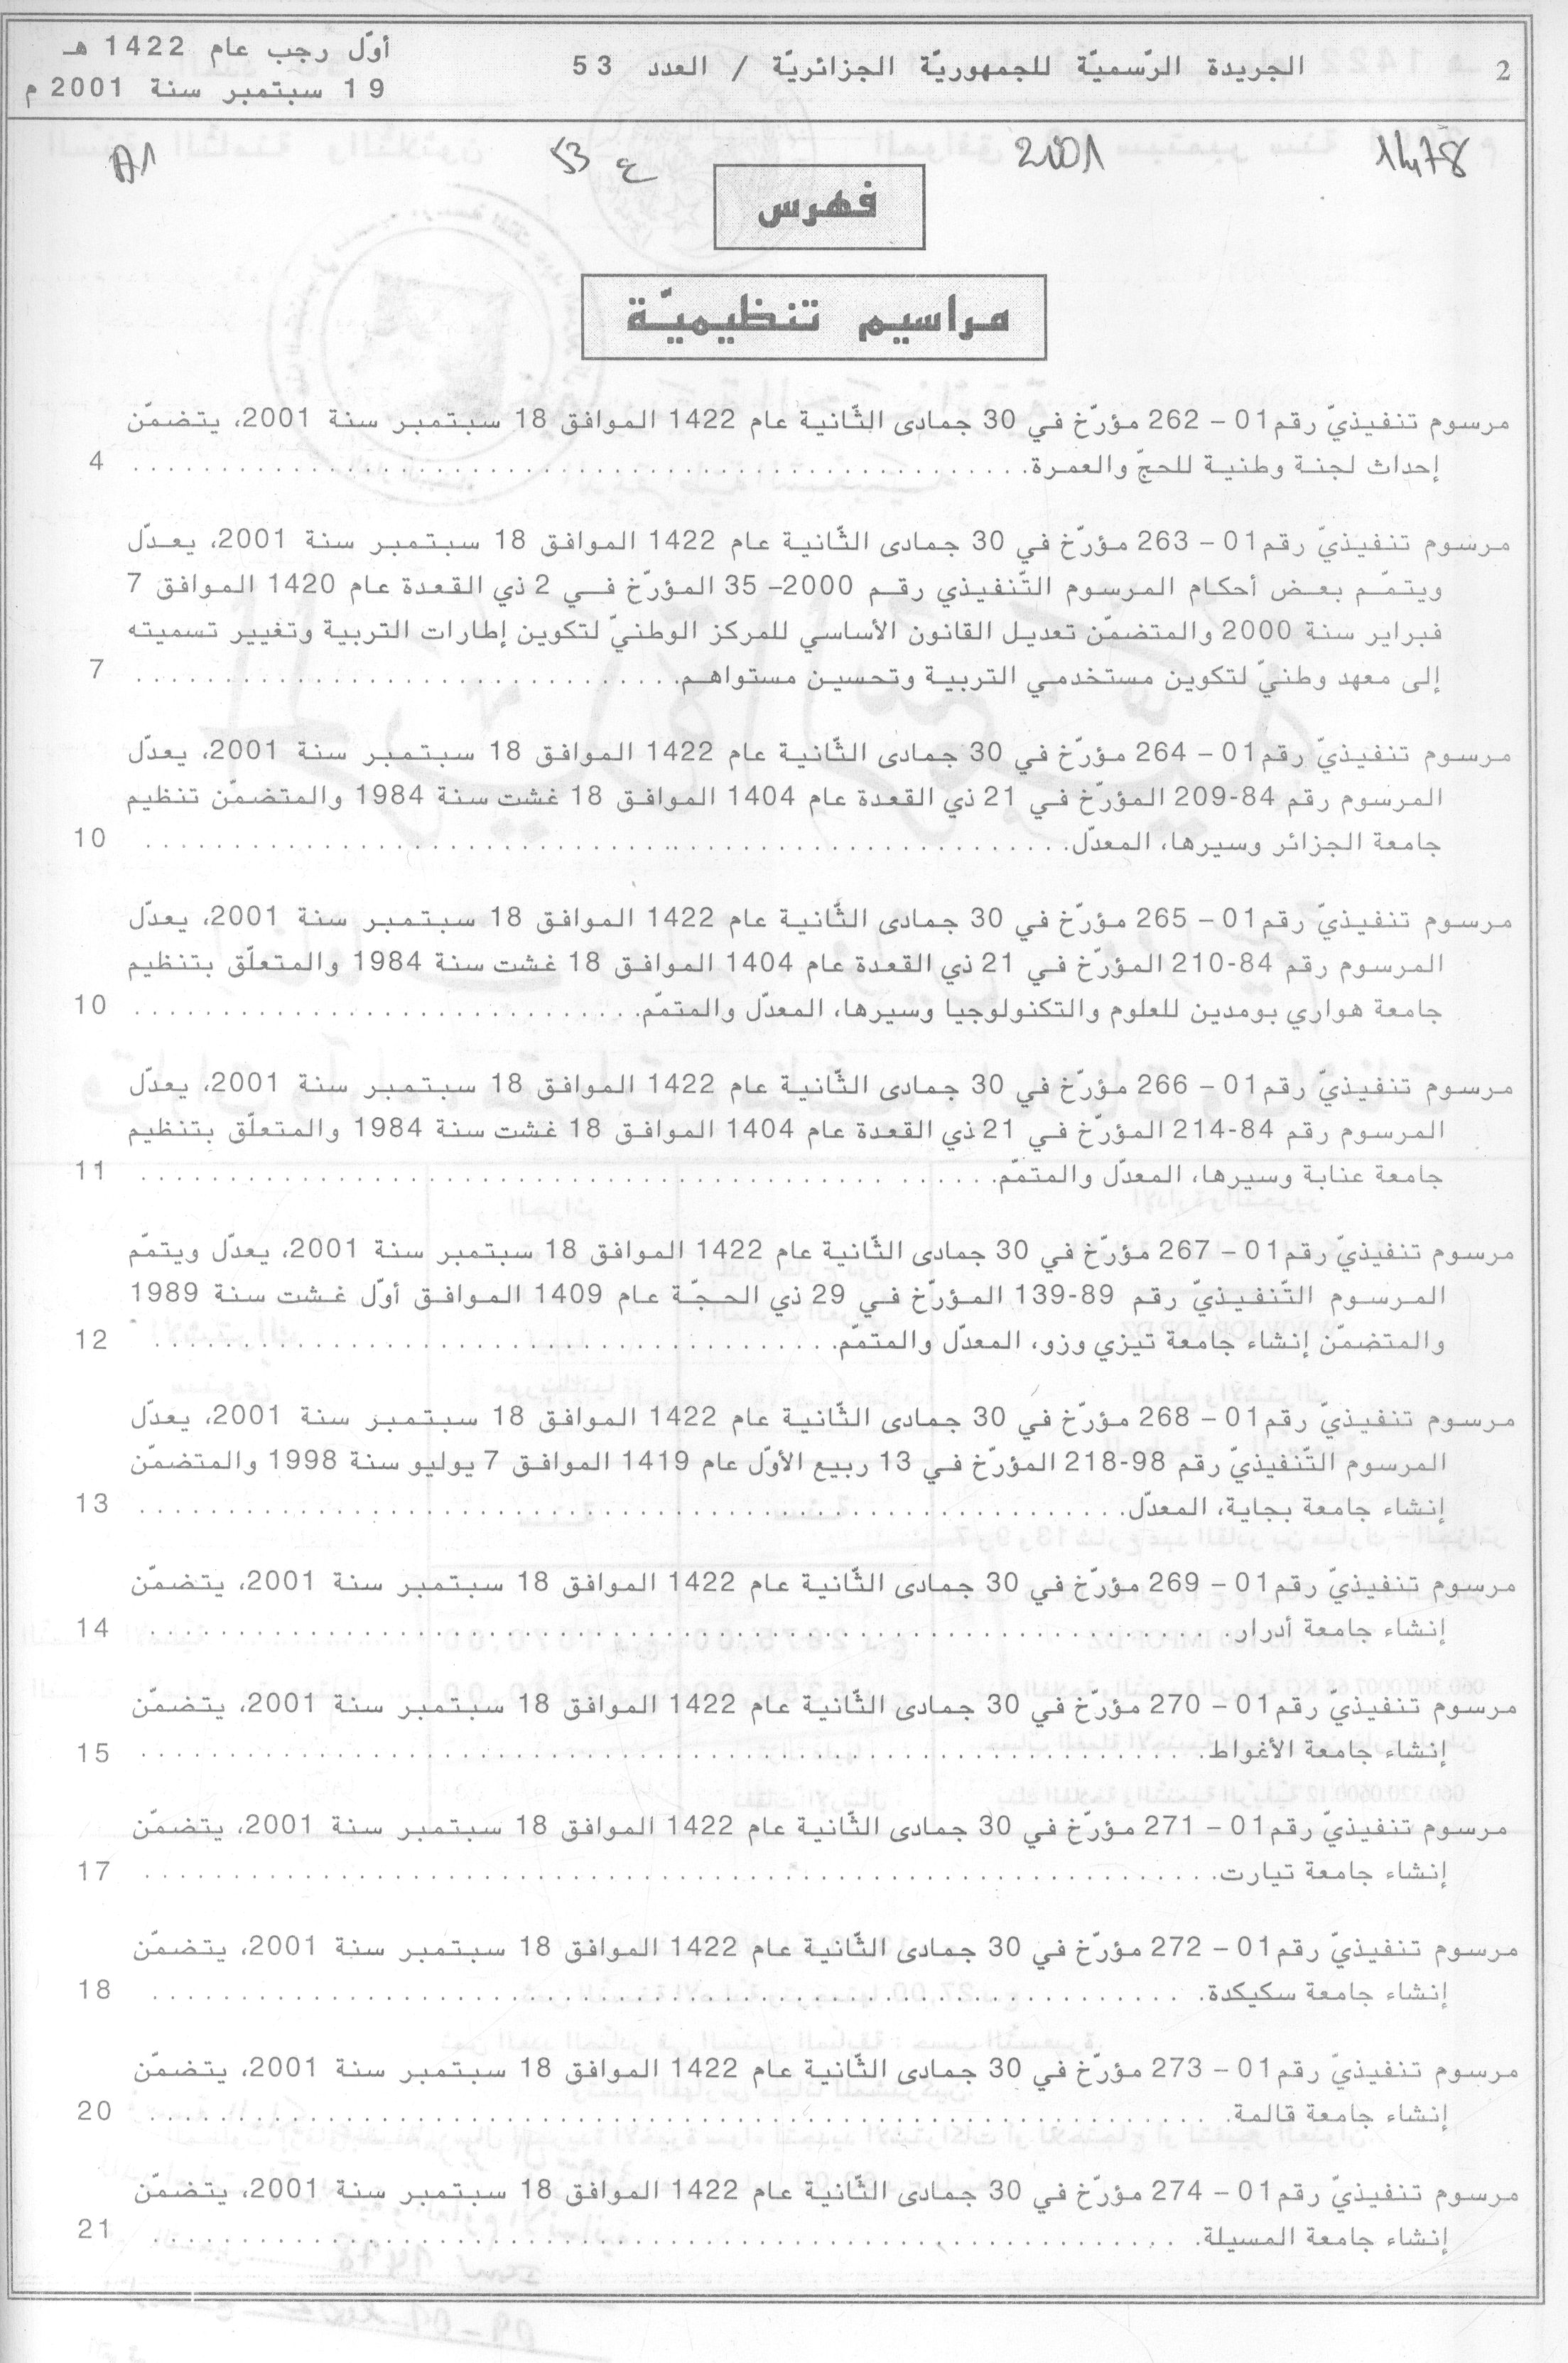 2
الجريدة الرّسميّة للجمهوريّة الجزائريّة / العدد 53
أوّل رجب عام 1422 هـ
19 سبتمبر سنة 2001 م
1478 2001 ع 53 A1
فهرس
مراسيم تنظيميّة
مرسوم تنفيذيّ رقم 01 – 262 مؤرّخ في 30 جمادى الثّانية عام 1422 الموافق 18 سبتمبر سنة 2001، يتضمّن
إحداث لجنة وطنية للحجّ والعمرة. 4
مرسوم تنفيذيّ رقم 01 – 263 مؤرّخ في 30 جمادى الثّانية عام 1422 الموافق 18 سبتمبر سنة 2001، يعدّل
ويتمّم بعض أحكام المرسوم التّنفيذي رقم 2000– 35 المؤرّخ في 2 ذي القعدة عام 1420 الموافق 7
فبراير سنة 2000 والمتضمّن تعديل القانون الأساسي للمركز الوطنيّ لتكوين إطارات التربية وتغيير تسميته
إلى معهد وطنيّ لتكوين مستخدمي التربية وتحسين مستواهم. 7
مرسوم تنفيذيّ رقم 01 – 264 مؤرّخ في 30 جمادى الثّانية عام 1422 الموافق 18 سبتمبر سنة 2001، يعدّل
المرسوم رقم 84-209 المؤرّخ في 21 ذي القعدة عام 1404 الموافق 18 غشت سنة 1984 والمتضمّن تنظيم
جامعة الجزائر وسيرها، المعدّل. 10
مرسوم تنفيذيّ رقم 01 – 265 مؤرّخ في 30 جمادى الثّانية عام 1422 الموافق 18 سبتمبر سنة 2001، يعدّل
المرسوم رقم 84-210 المؤرّخ في 21 ذي القعدة عام 1404 الموافق 18 غشت سنة 1984 والمتعلّق بتنظيم
جامعة هواري بومدين للعلوم والتكنولوجيا وسيرها، المعدّل والمتمّم. 10
مرسوم تنفيذيّ رقم 01 – 266 مؤرّخ في 30 جمادى الثّانية عام 1422 الموافق 18 سبتمبر سنة 2001، يعدّل
المرسوم رقم 84-214 المؤرّخ في 21 ذي القعدة عام 1404 الموافق 18 غشت سنة 1984 والمتعلّق بتنظيم
جامعة عنابة وسيرها، المعدّل والمتمّم. 11
مرسوم تنفيذيّ رقم 01 – 267 مؤرّخ في 30 جمادى الثّانية عام 1422 الموافق 18 سبتمبر سنة 2001، يعدّل ويتمّم
المرسوم التّنفيذيّ رقم 89-139 المؤرّخ في 29 ذي الحجّة عام 1409 الموافق أوّل غشت سنة 1989
والمتضمّن إنشاء جامعة تيزي وزو، المعدّل والمتمّم. 12
مرسوم تنفيذيّ رقم 01 – 268 مؤرّخ في 30 جمادى الثّانية عام 1422 الموافق 18 سبتمبر سنة 2001، يعدّل
المرسوم التّنفيذيّ رقم 98-218 المؤرّخ في 13 ربيع الأوّل عام 1419 الموافق 7 يوليو سنة 1998 والمتضمّن
إنشاء جامعة بجاية، المعدّل. 13
مرسوم تنفيذيّ رقم 01 – 269 مؤرّخ في 30 جمادى الثّانية عام 1422 الموافق 18 سبتمبر سنة 2001، يتضمّن
إنشاء جامعة أدرار. 14
مرسوم تنفيذيّ رقم 01 – 270 مؤرّخ في 30 جمادى الثّانية عام 1422 الموافق 18 سبتمبر سنة 2001، يتضمّن
إنشاء جامعة الأغواط. 15
مرسوم تنفيذيّ رقم 01 – 271 مؤرّخ في 30 جمادى الثّانية عام 1422 الموافق 18 سبتمبر سنة 2001، يتضمّن
إنشاء جامعة تيارت. 17
مرسوم تنفيذيّ رقم 01 – 272 مؤرّخ في 30 جمادى الثّانية عام 1422 الموافق 18 سبتمبر سنة 2001، يتضمّن
إنشاء جامعة سكيكدة. 18
مرسوم تنفيذيّ رقم 01 – 273 مؤرّخ في 30 جمادى الثّانية عام 1422 الموافق 18 سبتمبر سنة 2001، يتضمّن
إنشاء جامعة قالمة. 20
مرسوم تنفيذيّ رقم 01 – 274 مؤرّخ في 30 جمادى الثّانية عام 1422 الموافق 18 سبتمبر سنة 2001، يتضمّن
إنشاء جامعة المسيلة. 21